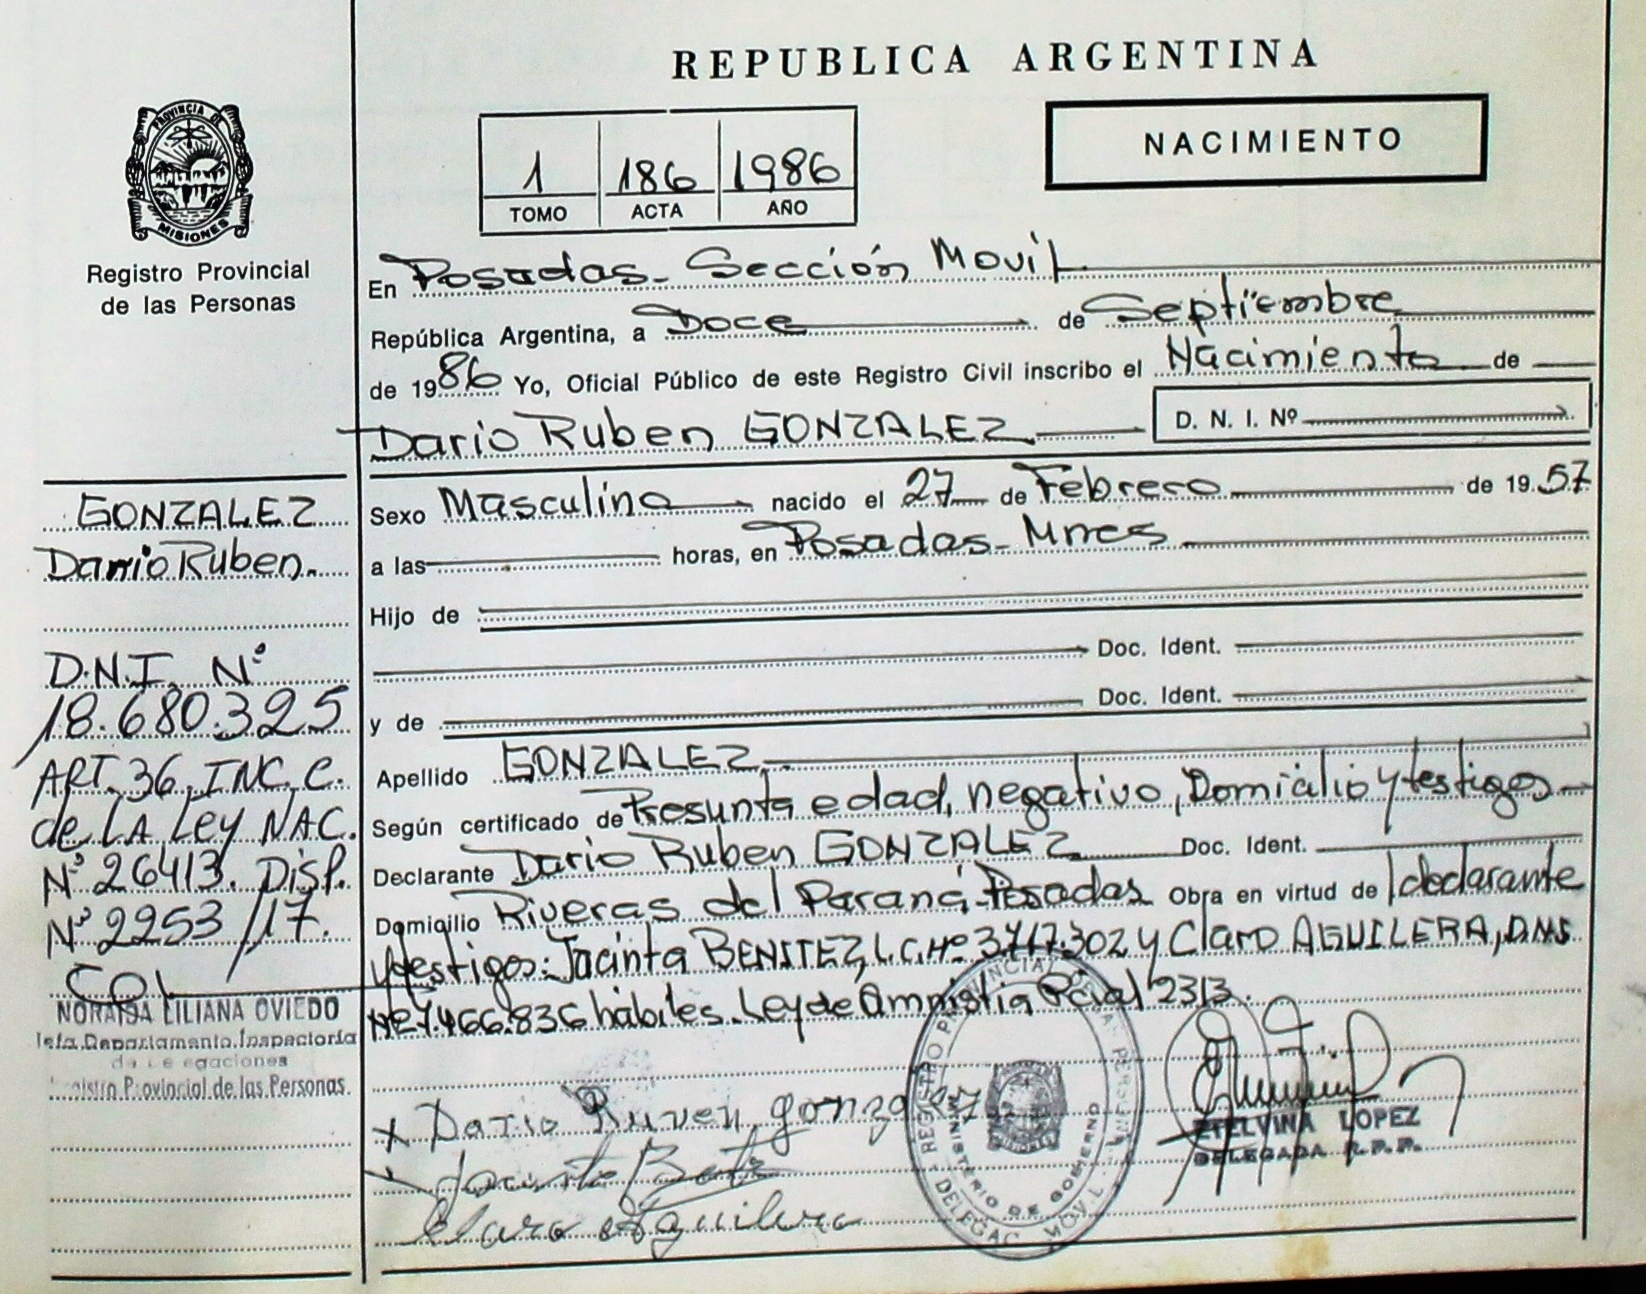 REPUBLICA ARGENTINA
PROVINCIA DE
MISIONES
Registro Provincial
de las Personas
1 186 1986
TOMO ACTA AÑO
NACIMIENTO
En Posadas - Sección Movil
República Argentina, a Doce de Septiembre
de 1986 Yo, Oficial Público de este Registro Civil inscribo el Nacimiento de
Dario Ruben GONZALEZ D. N. I. Nº
Sexo Masculino nacido el 27 de Febrero de 1957
a las horas, en Posadas - Mnes
Hijo de
Doc. Ident.
y de Doc. Ident.
Apellido GONZALEZ.
Según certificado de Presunta edad, negativo, Domicilio y testigos
Declarante Dario Ruben GONZALEZ Doc. Ident.
Domicilio Riveras del Paraná - Posadas Obra en virtud de l declarante
y testigos: Jacinta BENITEZ, L.C.Nº 3.717.302 y Claro AGUILERA,
Nº 7.466.836 hábiles. Ley de Amnistia Pcial 2313.
GONZALEZ
Dario Ruben.
D.N.I. Nº
18.680.325
ART. 36, INC. C.
de LA Ley NAC.
Nº 26413. Disp.
Nº 2253/17.
NORAIDA LILIANA OVIEDO
Jefa Departamento Inspectoria
de Delegaciones
Registro Provincial de las Personas.
x Dario Ruven gonzalez
Claro Aguilera
REGISTRO PROVINCIAL DE LAS PERSONAS
MINISTERIO DE GOBIERNO
DELEGAC. MOVIL
ETELVINA LOPEZ
DELEGADA R.P.P.